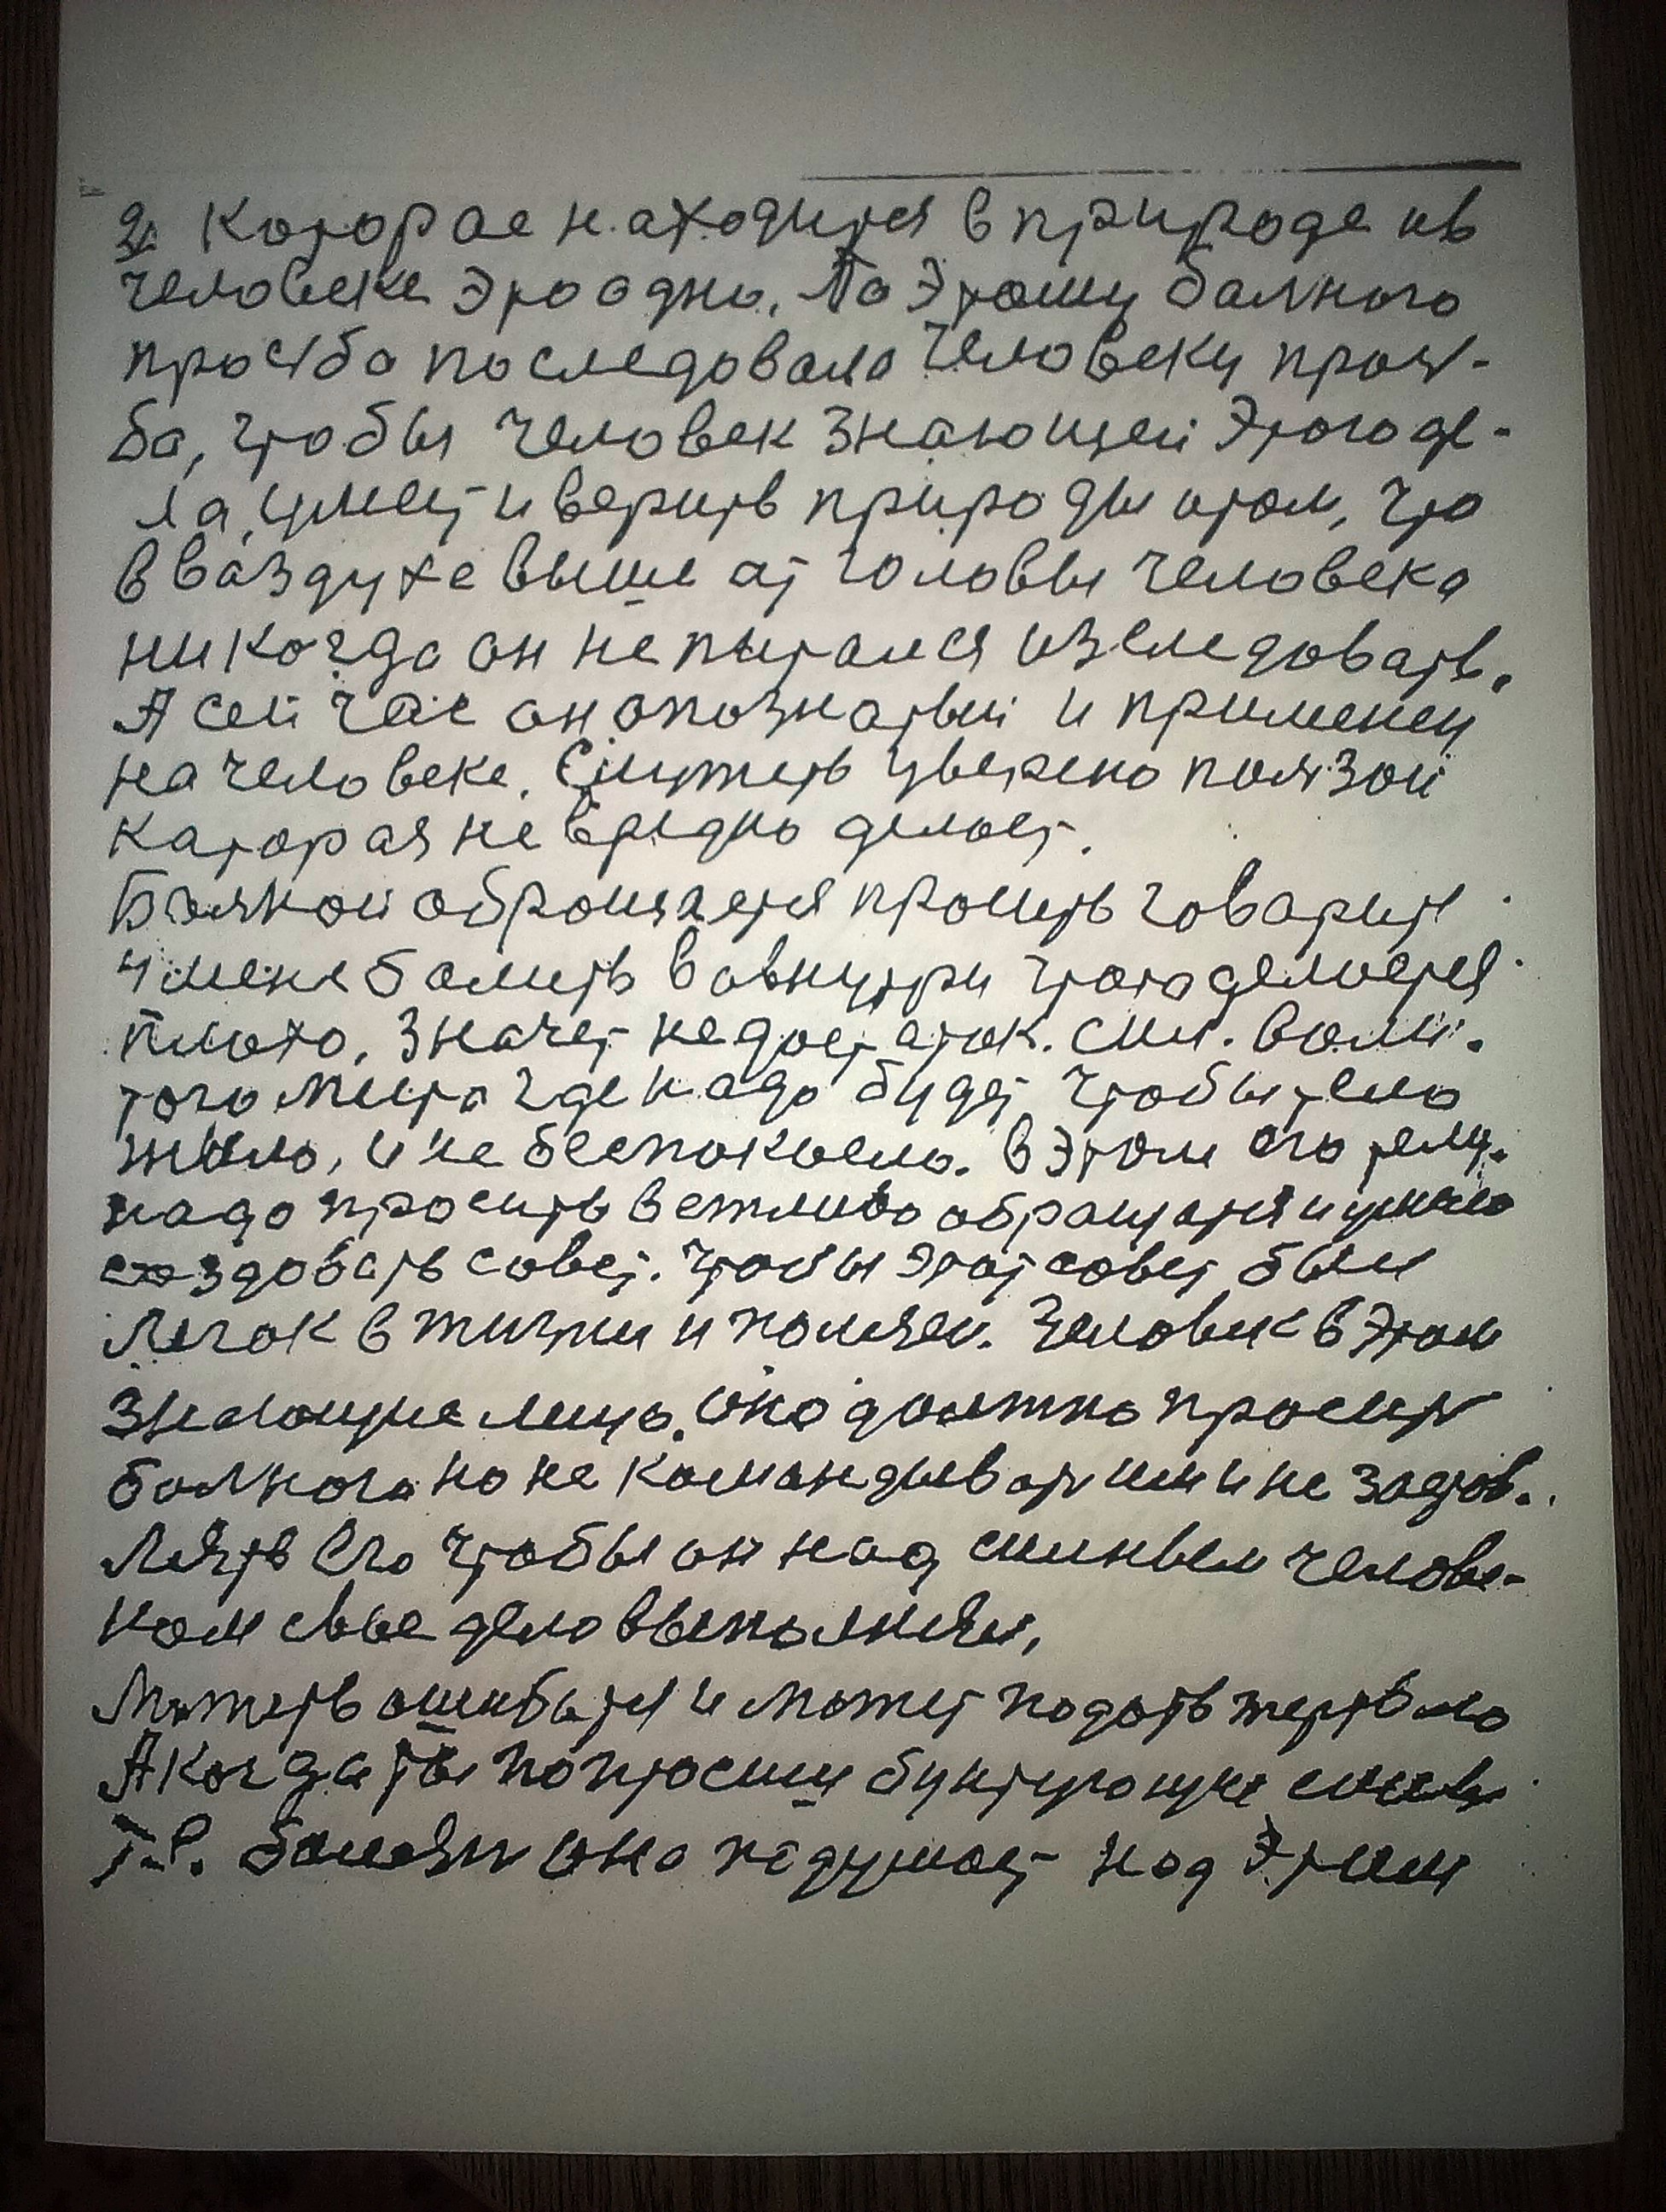 2. Которае находится в природе ив
человеке Это одно. По Этому балного
просьба последовала Человеку прось-
ба, чтобы человек знающей Этого де-
ла, умеет и верить природы и том, что
в ваздухе выше от головы человека
никогда он не пытался изследовать.
А сейчас он опознатый и применен
на человеке. Служить уверено ползой
каторая не вредно делает.
Балной обращается просить говарить
У мене болить вовнутри чтото делается
плохо, значет недостаток. сил. воли.
того места где надо будет чтобы тело
жило, и не беспокоело. в Этом его телу.
надо просить вежливо обращатся и умело
создовать совет. чтобы Этот совет был
Легок в жизни и полезен. Человек в Этом
знающие лицо. Оно должно просить
болного но не командывать им и не застов.
Лять Его чтобы он над силным челове-
ком свое дело выполнял,
Может ошибатся и может подать жертвою
А когда ты попросиш бунтующие силы
Т.Е. болезни она подумает над Этим